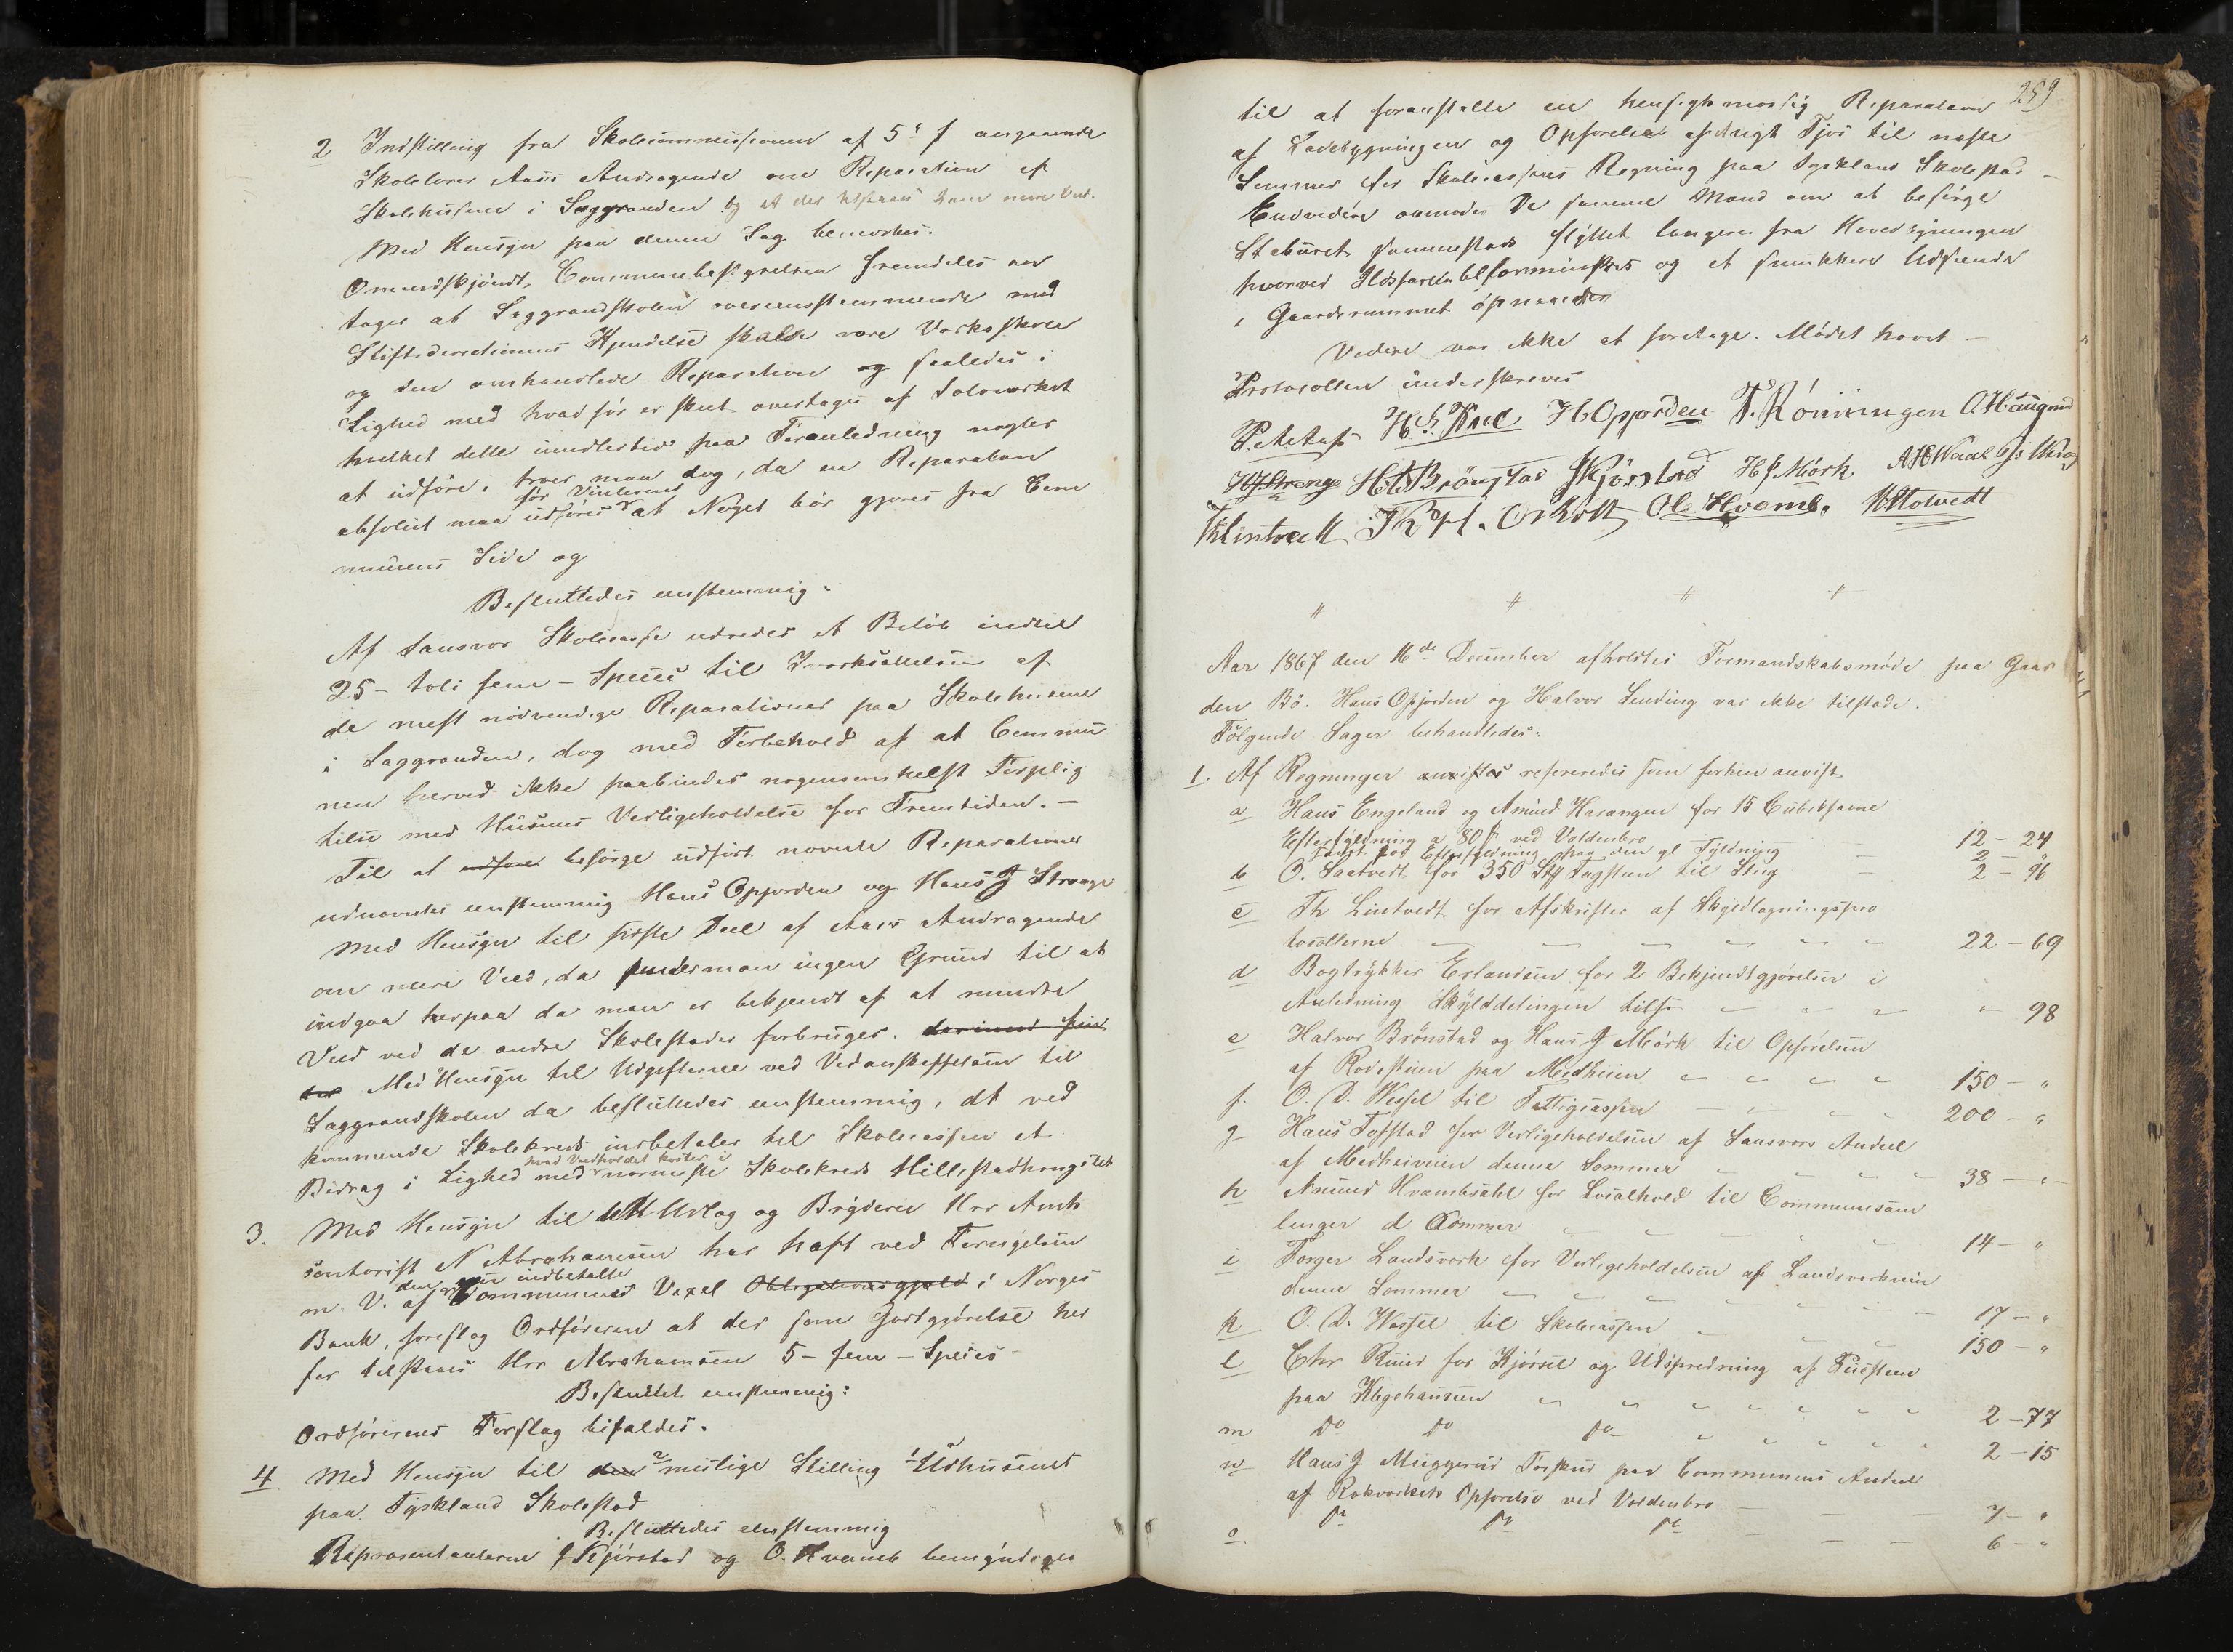 2 Indstilling fra Skolecommissionen af 5te f angaaende
Skolelærer Aass Andragende om Reparation af
Skolehusene i Saggranden og at der tilstaaes ham mere Ved.
Med Hensyn paa denne Sag bemærkes:
Omendskjøndt Communebestyrelsen fremdeles an
tager at Saggrandskolen overensstemmende med
Stiftsdirectionens Kjendelse skulde være Værksskole
og den omhandlede Reparation og saaledes i
Lighed med hvad før er skeet overtages af Sølvværket
hvilket dette imidlertid paa Foranledning negter
at udføre, troer man dog, da en Reparation
absolut maa udføres før Vinteren at Noget bør gjøres fra Com
munens Side og
Besluttedes enstemmig:
Af Sansvær Skolecasse udredes et Beløb indtil
25 - tolv fem - Species til Iværksættelsen af
de mest nødvendige Reparationer paa Skolehusene
i Saggranden, dog med Forbehold af at Commu
nen herved ikke paabindes nogensomhelst Forplig
telse med Husenes Vedligeholdelse for Fremtiden. -
Til at udføre besørge udført nævnte Reparationer
udnævntes enstemmig Hans Opjorden og Hans J Strange
Med Hensyn til sidste Deel af Aass Andragende
om mere Ved, da finder man ingen Grund til at
indgaa herpaa da man er bekjendt af at mindre
Ved ved de andre Skolestader forbruges.
Med Hensyn til Udgifterne ved Vedanskaffelsen til
Saggrandskolen da besluttedes enstemmig, at ved
kommende Skolekreds indbetaler til Skolecassen et
Bidrag i Lighed med hvad Vedholdet koster i nærmeste Skolekreds Hillestadhougstet
3. Med Hensyn til det Udlag og Bryderi Hrr Amts
contorist N Abrahamsen har havt ved Fornyelsen
m. V. af den nu indbetalte Communens Vexel Obligationsgjæld i Norges
Bank, foreslog Ordføreren at der som Godtgjørelse her
for tilstaaes Hrr Abrahamsen 5 - fem - Species
Besluttet enstemmig:
Ordførerens Forslag bifaldes.
4 Med Hensyn til den mislige Stilling Udhusenes
paa Tyskland Skolestad
Besluttedes enstemmig
Repræsentanterne J Kjørstad og O. Hvamb bemyndiges
259
til at foranstalte en hensigtsmæssig Reparation
af Ladebygningen og Opførelse af nyt Fjøs til næste
Sommer for Skolecassens Regning paa Tyskland Skolestad -
Endvidere anmodes De samme Mænd om at besørge
Staburet sammestads flyttet længere fra Hovedbygningen
hvorved Ildsfaren blev formindsket og et smukkere Udseende
i Gaardsrummet opnaaedes
Videre var ikke at foretage. Mødet hævet -
Protocollen underskreves
P. Aas H. Kul H Opjorden T. Röningen O. Haugerud
HJ Strange H Brönstad J Kjörstad H J Mörk. A H Waal
Th Lintvedt O Kolt Ole Hvamb. H Stotvedt
" " " "
Aar 1867 den 16de December afholdtes Formandskabsmøde paa Gaar
den Bø. Hans Opjorden og Halvor Lending var ikke tilstede.
Følgende Sager behandledes:
1. Af Regninger anvistes refereredes som forhen anvist
a Hans Engeland og Amund Hasangen for 15 Cubikfavne
Efterfyldning a 80 s ved Voldenbro 12 - 24
Samt for Efterfyldning paa den gl Fyldning 2 - "
b O. Saatvedt for 350 Stk Tagsten til Slug 2 - 96
c Th Lintvedt for Afskrifter af Skyldlægningspro
tocollerne 22 - 69
d Bogtrykker Erlandsen for 2 Bekjendtgjørelser i
Anledning Skylddelingen tils. " - 98
e Halvor Brønstad og Hans J Mørk til Opførelsen
af Rodestuen paa Medheien 150 - "
f. O. D. Wessel til Fattigcassen 200 - "
g Hans Tofstad for Vedligeholdelsen af Sansværs Andeel
af Medheiveien denne Sommer 38 - "
h Amund Hvambsahl for Localhold til Communesam
linger d Kommer 14 - "
i Torger Landsværk for Vedligeholdelsen af Landsværkveien
denne Sommer 17 - "
k O. D. Wessel til Skolecassen 150 - "
l Chr Ruud for Kjørsel og Udspredning af
paa 2 - 77
m Do Do Do 2 - 15
n Hans J Muggerud Forskud paa Communens Andeel
af Rækværkets Opførelse ved Voldenbro 7 - "
o. Do Do Do 6 - "